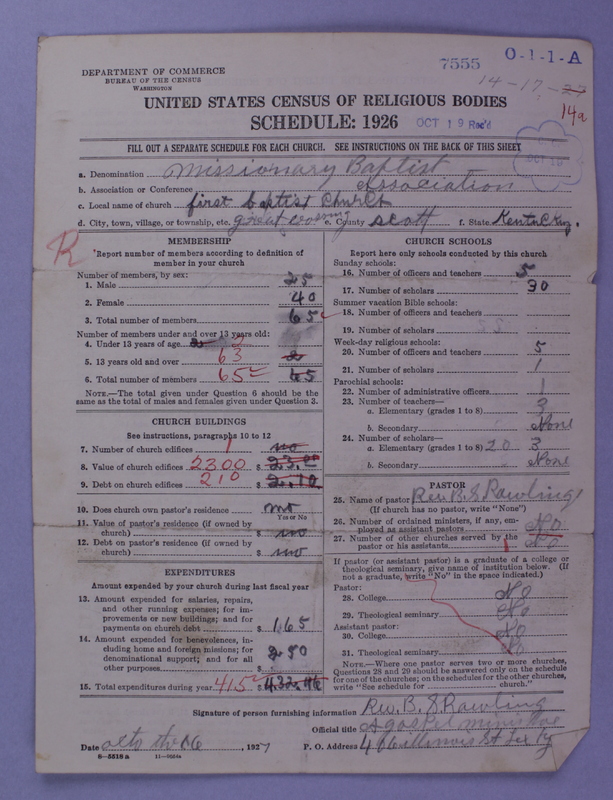 7555 O-1-1-A
DEPARTMENT OF COMMERCE
BUREAU OF THE CENSUS
WASHINGTON
14-17-
14a
UNITED STATES CENSUS OF RELIGIOUS BODIES
SCHEDULE: 1926
OCT 19 Rec'd
FILL OUT A SEPARATE SCHEDULE FOR EACH CHURCH. SEE INSTRUCTIONS ON THE BACK OF THIS SHEET
a. Denomination Missionary Baptist
b. Association or Conference Association
c. Local name of church first baptist Church
d. City, town, village, or township, etc. great crossing e. County Scott f. State Kentucky.
R
MEMBERSHIP
Report number of members according to definition of
member in your church
Number of members, by sex:
1. Male 25
2. Female 40
3. Total number of members 65
Number of members under and over 13 years old:
4. Under 13 years of age 2
5. 13 years old and over 63 2
6. Total number of members 65 65
NOTE.—The total given under Question 6 should be
the same as the total of males and females given under Question 3.
CHURCH BUILDINGS
See instructions, paragraphs 10 to 12
7. Number of church edifices 1 no
8. Value of church edifices 2300 $
9. Debt on church edifices 210 $ 2.10
10. Does church own pastor's residence no
Yes or No
11. Value of pastor's residence (if owned by
church) $ no
12. Debt on pastor's residence (if owned by
church) $ no
EXPENDITURES
Amount expended by your church during last fiscal year
13. Amount expended for salaries, repairs,
and other running expenses; for im-
provements or new buildings; and for
payments on church debt $ 165
14. Amount expended for benevolences, in-
cluding home and foreign missions; for
denominational support; and for all
other purposes $ 250
15. Total expenditures during year 415 $
CHURCH SCHOOLS
Report here only schools conducted by this church
Sunday schools:
16. Number of officers and teachers 5
17. Number of scholars 30
Summer vacation Bible schools:
18. Number of officers and teachers
19. Number of scholars
Week-day religious schools:
20. Number of officers and teachers 5
21. Number of scholars 1
Parochial schools:
22. Number of administrative officers 1
23. Number of teachers—
a. Elementary (grades 1 to 8) 3
b. Secondary None
24. Number of scholars—
a. Elementary (grades 1 to 8) 20 3
b. Secondary None
PASTOR
25. Name of pastor Rev. B. S. Rawling
(If church has no pastor, write "None")
26. Number of ordained ministers, if any, em-
ployed as assistant pastors No
27. Number of other churches served by the
pastor or his assistants 1 No
If pastor (or assistant pastor) is a graduate of a college or
theological seminary, give name of institution below. (If
not a graduate, write "No" in the space indicated.)
Pastor:
28. College No
29. Theological seminary No
Assistant pastor:
30. College No
31. Theological seminary No
NOTE.—Where one pastor serves two or more churches,
Questions 28 and 29 should be answered only on the schedule
for one of the churches; on the schedules for the other churches,
write "See schedule for
Signature of person furnishing information Rev. B. S. Rawling
Official title A gospel minister
Date octo the 16, 1927 P. O. Address Illinois St Lex Ky
8-5518a